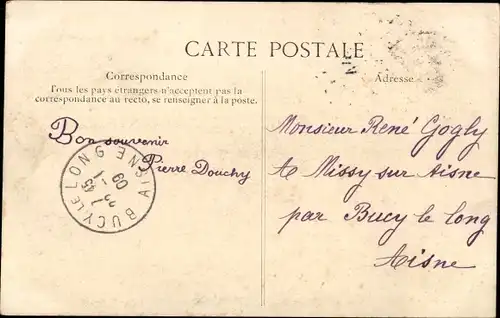 CARTE POSTALE
Correspondance
Tous les pays étrangers n'acceptent pas la
correspondance au recto, se renseigner à la poste.
Adresse
Bon souvenir
Pierre Douchy
Monsieur René Gogly
A Missy sur Aisne
par Bucy le long
Aisne
BUCY LE LONG AISNE
09